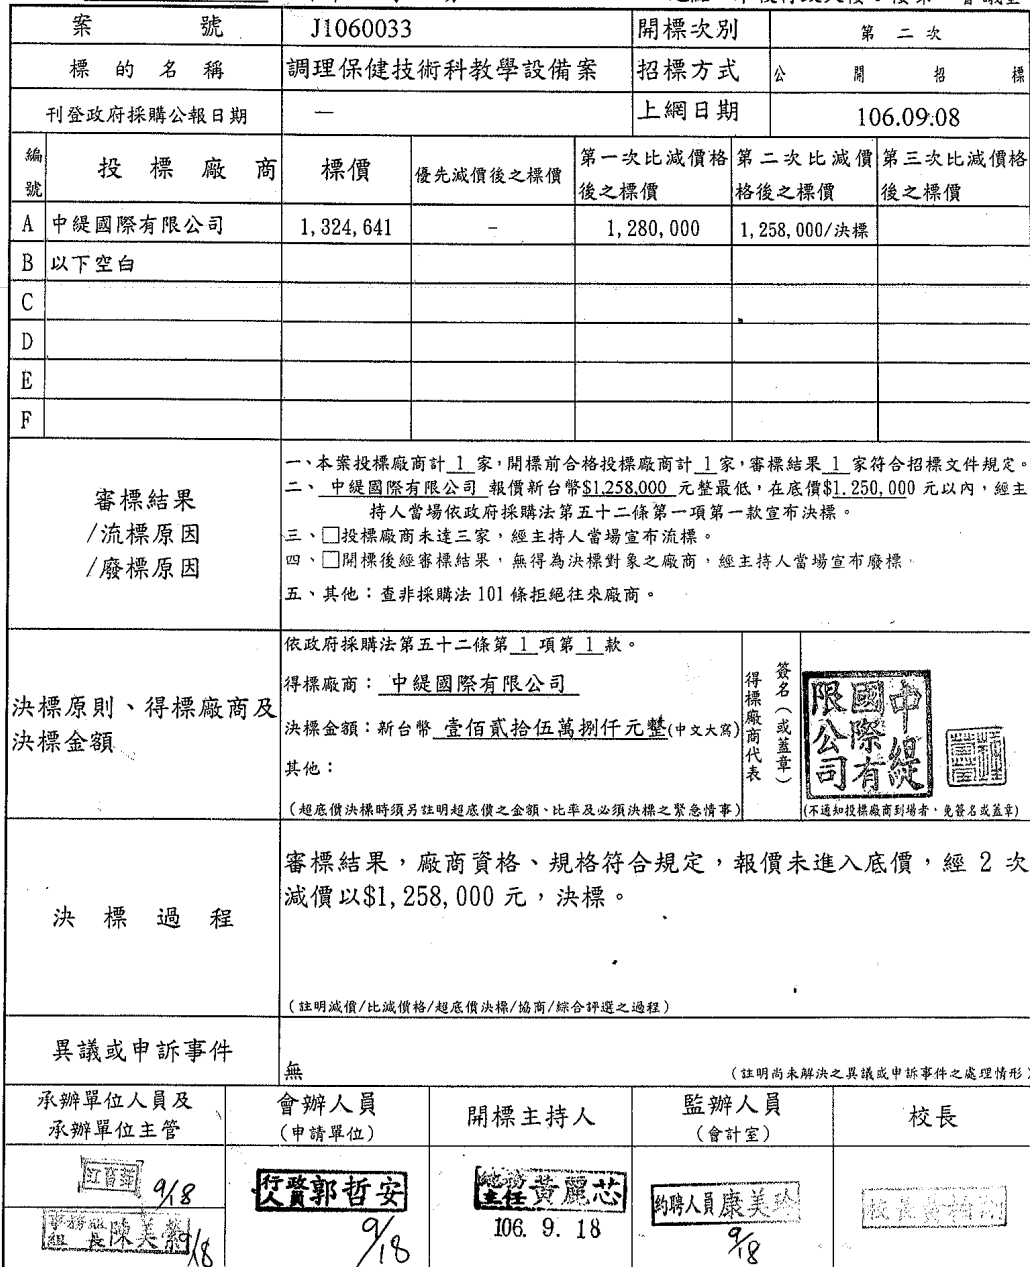 案 號 J1060033 開標次別 第 二 次
標 的 名 稱 調理保健技術科教學設備案 招標方式 公 開 招 標
刊登政府採購公報日期 — 上網日期 106.09.08
編號 投 標 廠 商 標價 優先減價後之標價 第一次比減價格後之標價 第二次比減價格後之標價 第三次比減價格後之標價
A 中緹國際有限公司 1,324,641 - 1,280,000 1,258,000/決標
B 以下空白
C
D
E
F
審標結果
/流標原因
/廢標原因
一、本案投標廠商計 1 家,開標前合格投標廠商計 1 家,審標結果 1 家符合招標文件規定。
二、 中緹國際有限公司 報價新台幣$1,258,000 元整最低,在底價$1,250,000 元以內,經主
持人當場依政府採購法第五十二條第一項第一款宣布決標。
三、□投標廠商未達三家,經主持人當場宣布流標。
四、□開標後經審標結果,無得為決標對象之廠商,經主持人當場宣布廢標。
五、其他:查非採購法 101 條拒絕往來廠商。
決標原則、得標廠商及
決標金額
依政府採購法第五十二條第 1 項第 1 款。
得標廠商: 中緹國際有限公司
決標金額:新台幣 壹佰貳拾伍萬捌仟元整(中文大寫)
其他:
(超底價決標時須另註明超底價之金額、比率及必須決標之緊急情事)
得標廠商代表
簽名(或蓋章)
中緹國際有限公司
(不通知投標廠商到場者,免簽名或蓋章)
決 標 過 程
審標結果,廠商資格、規格符合規定,報價未進入底價,經 2 次
減價以$1,258,000 元,決標。
(註明減價/比減價格/超底價決標/協商/綜合評選之過程)
異議或申訴事件
無
(註明尚未解決之異議或申訴事件之處理情形)
承辦單位人員及
承辦單位主管
會辦人員
(申請單位)
開標主持人
監辦人員
(會計室)
校長
9/18
事務組組長 陳美縈 9/18
行政人員 郭哲安
9/18
總務主任 黃麗芯
106. 9. 18
約聘人員 康美玲
9/18